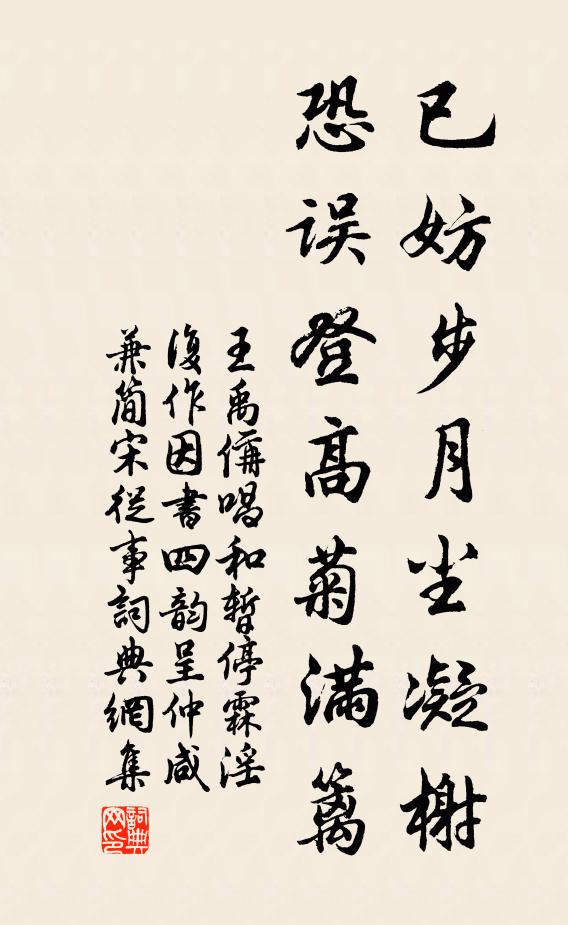 已妨步月尘凝榭
恐误登高菊满篱
王禹偁唱和暂停霖淫
復作因書四韵呈仲咸
兼简宋從事詞典網集
詞典網印